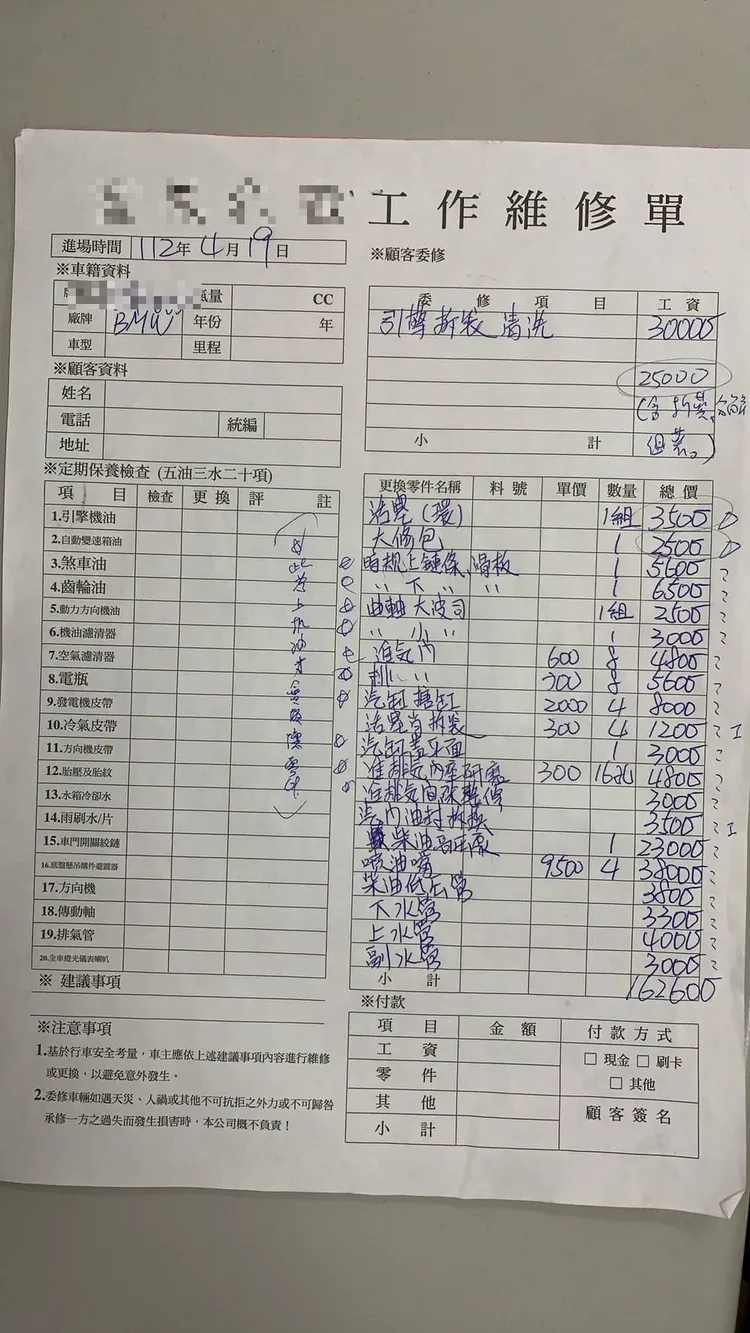 工作維修單
進場時間 112年 4月 19日
※顧客委修
※車籍資料
氣量 CC
廠牌 BMW 年份 年
車型 里程
委修項目 工資
引擎拆裝 清洗 30000
25000
小計
※顧客資料
姓名
電話 統編
地址
※定期保養檢查 (五油三水二十項)
項目 檢查 更換 評註
1.引擎機油
2.自動變速箱油
3.煞車油
4.齒輪油
5.動力方向機油
6.機油濾清器
7.空氣濾清器
8.電瓶
9.發電機皮帶
10.冷氣皮帶
11.方向機皮帶
12.胎壓及胎紋
13.水箱冷卻水
14.雨刷水/片
15.車門開關絞鏈
16.底盤懸吊購件避震器
17.方向機
18.傳動軸
19.排氣管
20.全車燈光儀表喇叭
※ 建議事項
更換零件名稱 料號 單價 數量 總價
活塞(環) 1組 3500
大修包 1 2500
時規上鏈條、滑板 1 5600
〃 下 〃 〃 1 6500
曲軸大波司 1組 2500
〃 小 〃 1 3000
進氣門 600 8 4800
排 〃 〃 700 8 5600
汽缸搪缸 2000 4 8000
活塞肖拆裝 300 4 1200
汽缸蓋平面 1 3000
進排氣內座研磨 300 16 4800
進排氣間隙整修 3000
汽門油封拆換 3500
柴油高壓泵 1 23000
噴油嘴 9500 4 38000
柴油低壓管 3800
下水管 3300
上水管 4000
副水管 3000
小計 162600
※注意事項
1.基於行車安全考量，車主應依上述建議事項內容進行維修
或更換，以避免意外發生。
2.委修車輛如遇天災、人禍或其他不可抗拒之外力或不可歸咎
承修一方之過失而發生損害時，本公司概不負責！
※付款
項目 金額 付款方式
工資 □ 現金 □ 刷卡
零件 □ 其他
其他 顧客簽名
小計